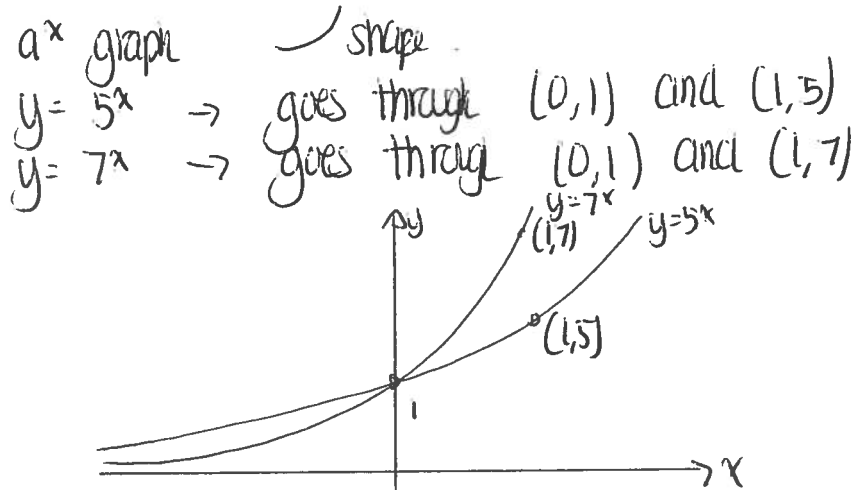 aˣ graph shape
y = 5ˣ → goes through (0,1) and (1,5)
y = 7ˣ → goes through (0,1) and (1,7)
y y=7ˣ y=5ˣ
(1,7)
(1,5)
1
x